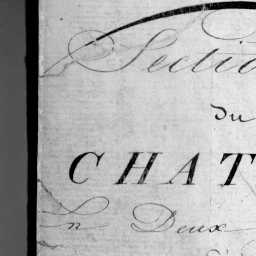 Sectio
du
CHAT
En Deux